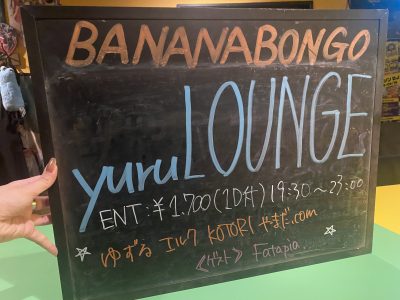 BANANABONGO
yuru LOUNGE
ENT:¥1.700(1D付) 19:30〜23:00
ゆずる エルク KOTORI やまだ.com
《ゲスト》 Fatapia